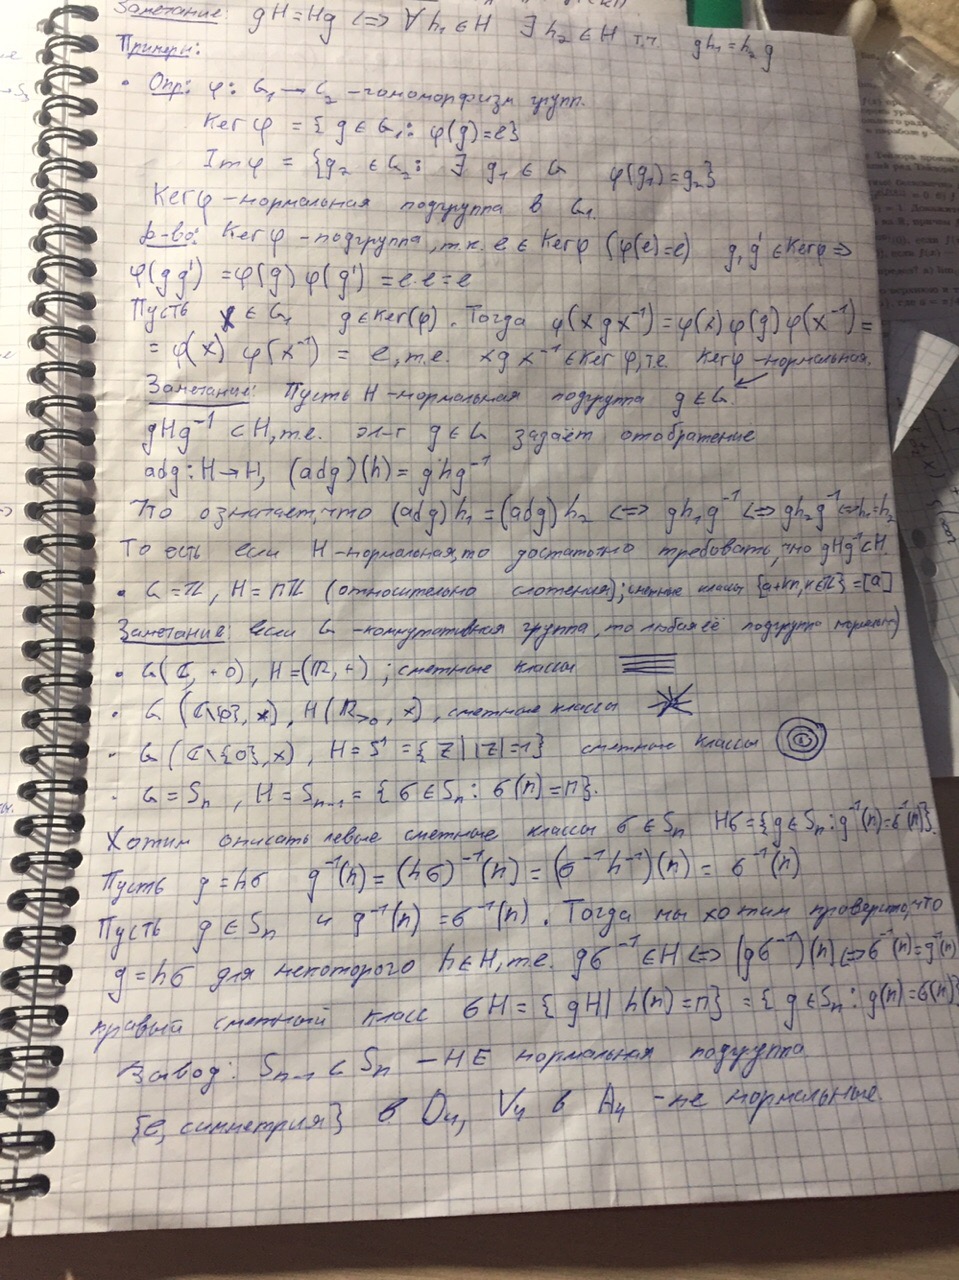 Замечание: gH=Hg <=> ∀ h₁∈H ∃ h₂∈H т.ч. gh₁=h₂g
Примеры:
• Опр: φ: G₁→G₂ - гомоморфизм групп.
Ker φ = {g∈G₁: φ(g)=e}
Im φ = {g₂∈G₂: ∃ g₁∈G φ(g₁)=g₂}
Ker φ - нормальная подгруппа в G₁.
Д-во: Ker φ - подгруппа, т.к. e∈Ker φ (φ(e)=e) g, g'∈Ker φ ⇒
φ(gg') = φ(g) φ(g') = e·e = e
Пусть x∈G₁ g∈Ker(φ). Тогда φ(xgx⁻¹) = φ(x) φ(g) φ(x⁻¹) =
= φ(x) φ(x⁻¹) = e, т.е. xgx⁻¹∈Ker φ, т.е. Ker φ - нормальная.
Замечание: Пусть H - нормальная подгруппа g∈G.
gHg⁻¹⊂H, т.е. эл-т g∈G задаёт отображение
adg: H→H, (adg)(h) = ghg⁻¹
Что означает, что (adg)h₁ = (adg)h₂ <=> gh₁g⁻¹ <=> gh₂g⁻¹ <=> h₁=h₂
То есть если H - нормальная, то достаточно требовать, что gHg⁻¹⊂H.
• G=ℤ, H=nℤ (относительно сложения); смежные классы {a+kn, k∈ℤ} = [a]
Замечание: если G - коммутативная группа, то любая её подгруппа нормальн)
• G(ℂ, +0), H=(ℝ,+); смежные классы
• G (ℂ\{0}, ×), H(ℝ>0, ×), смежные классы
• G (ℂ\{0}, ×), H=S¹={z| |z|=1} смежные классы
• G=Sₙ, H=Sₙ₋₁ = {σ∈Sₙ: σ(n)=n}.
Хотим описать левые смежные классы σ∈Sₙ Hσ={g∈Sₙ: g⁻¹(n)=σ⁻¹(n)}.
Пусть g=hσ g⁻¹(n) = (hσ)⁻¹(n) = (σ⁻¹h⁻¹)(n) = σ⁻¹(n)
Пусть g∈Sₙ и g⁻¹(n)=σ⁻¹(n). Тогда мы хотим проверить, что
g=hσ для некоторого h∈H, т.е. gσ⁻¹∈H <=> (gσ⁻¹)(n) <=> σ⁻¹(n)=g⁻¹(n)
правый смежный класс σH = {gH| h(n)=n} = {g∈Sₙ: g(n)=σ(n)}
Вывод: Sₙ₋₁⊂Sₙ - НЕ нормальная подгруппа
{e, симметрия} в D₄, V₄ в A₄ - не нормальные.